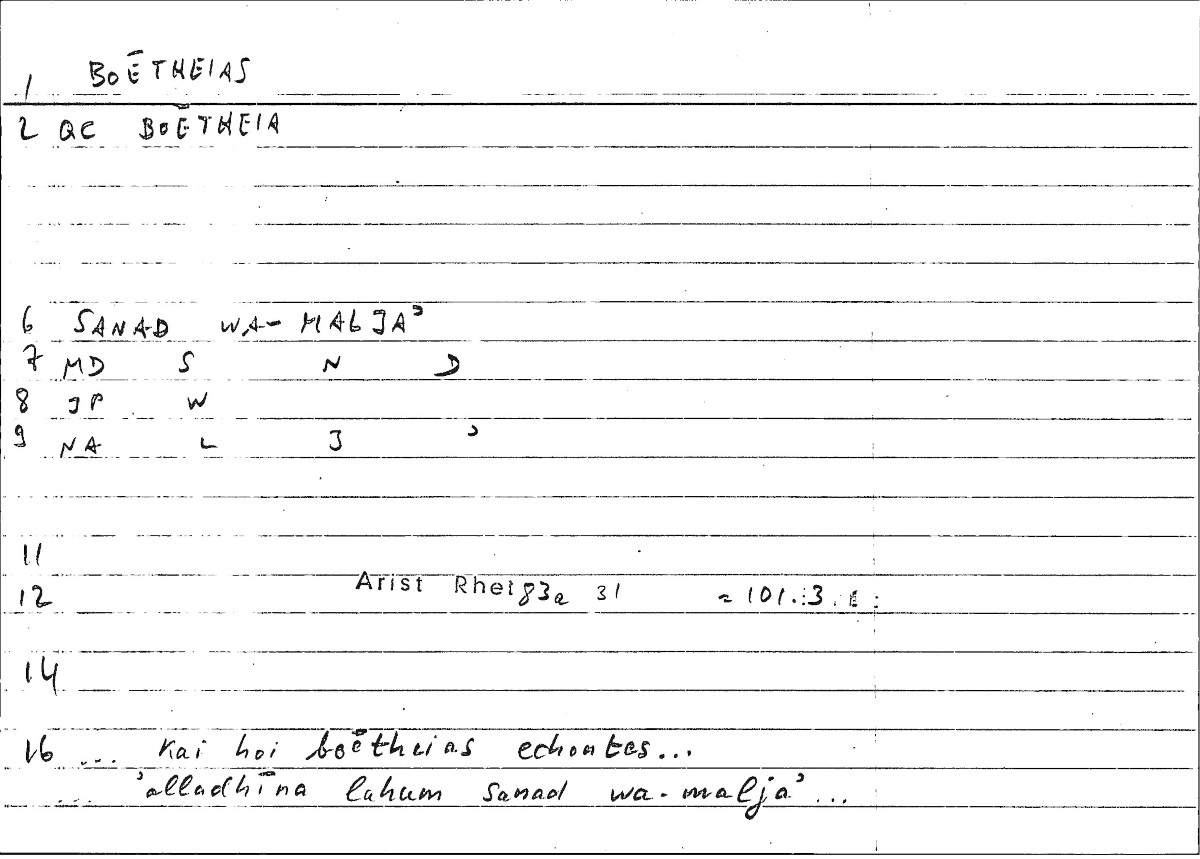 1 BOĒTHEIAS
2 QC BOĒTHEIA
6 SANAD WA- MALJAʾ
7 MD S N D
8 JP W
9 NA L J ʾ
11
12 Arist Rhet 83a 31 = 101. 3.
14
16 ... kai hoi boētheias echontes...
... ʾalladhīna lahum sanad wa-maljaʾ...